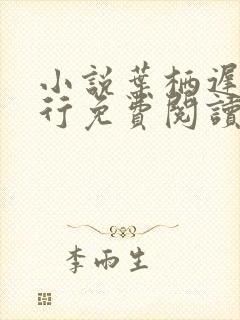 小說葉柄遲
行免費閱讀
李雨生